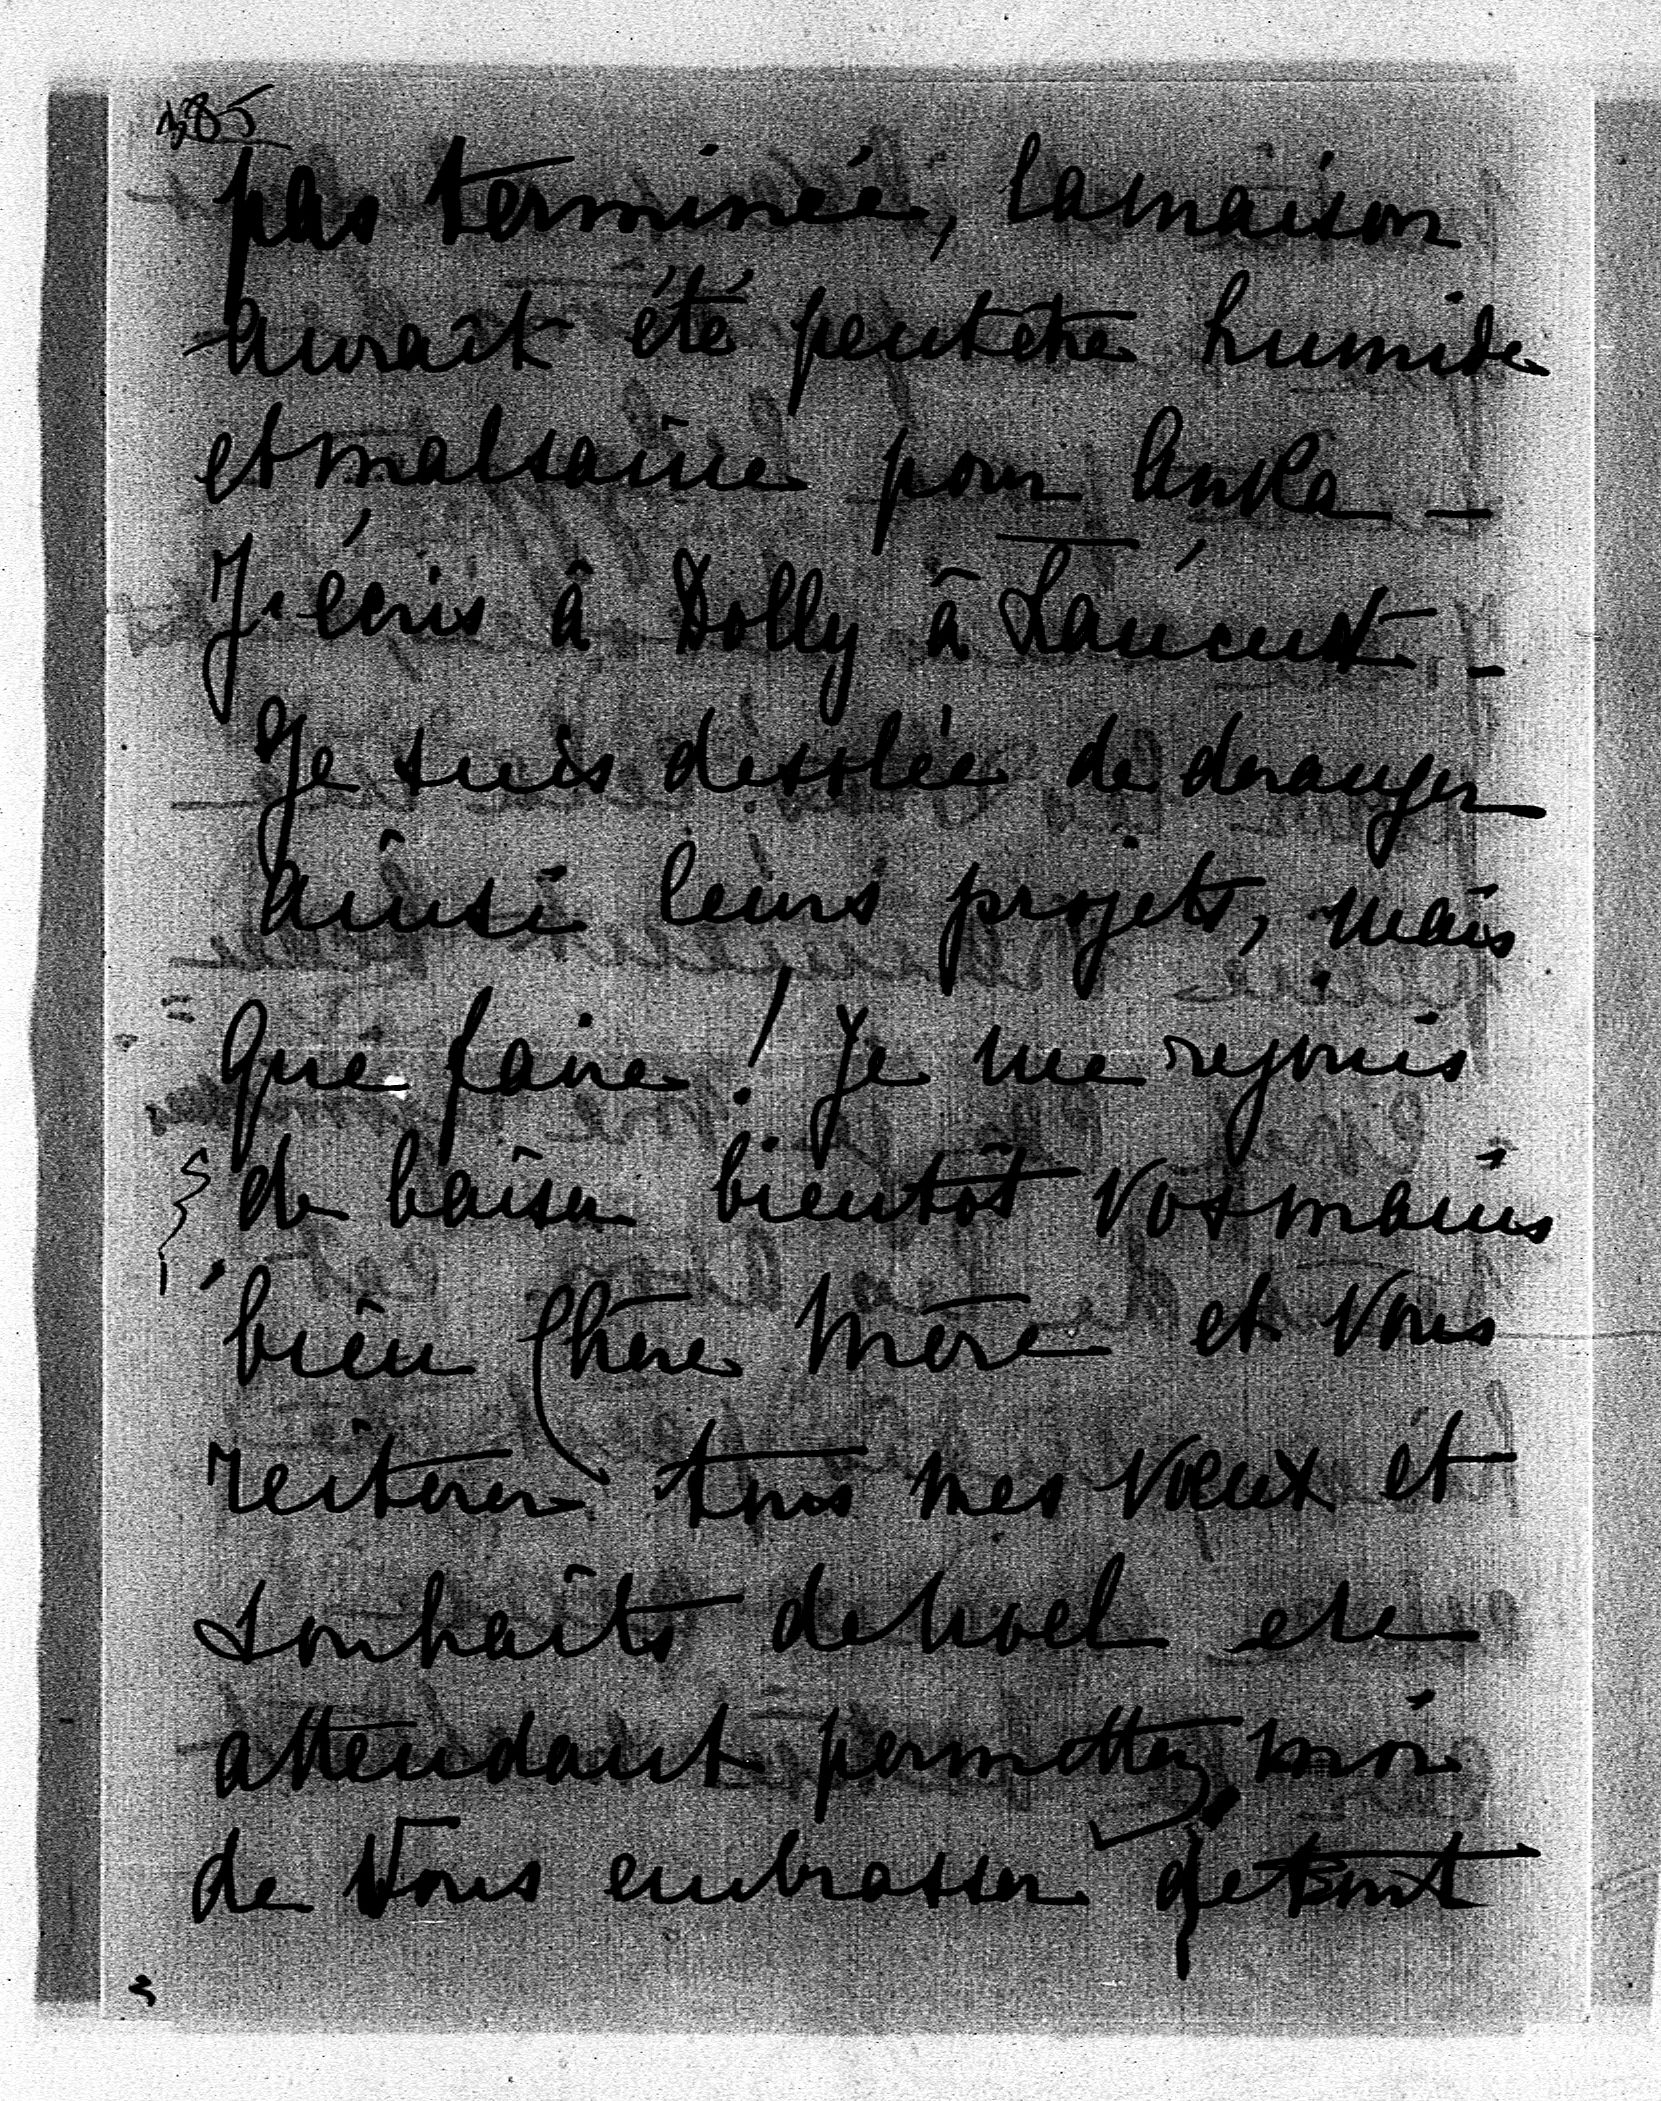 385
pas terminée, la maison
aurait été peutêtre humide
et malsaine pour Anka –
J'écris à Dolly à Láncut –
Je suis desolée de deranger
ainsi leurs projets, mais
que faire! Je me rejouis
de baiser bientôt vos mains
bien Chère Mère et Vous
reiterer tous mes vœux et
souhaits de Noel
attendant permettez moi
de Vous embrasser de tout